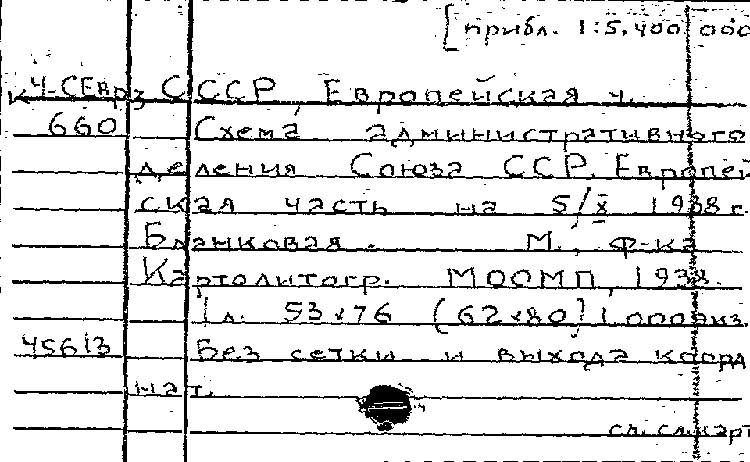 [прибл. 1:5.400 000
К Ч-СЕвр СССР, Европейская ч.
660 Схема административного
деления Союза ССР. Европей
ская часть на 5/X 1938 г.
Бланковая. М., Ф-ка
Картолитогр. МООМП, 1938.
1 л. 53×76 (62×80) 1.000 экз.
45613 Без сетки и выхода коорд
нат.
сл. см. карт